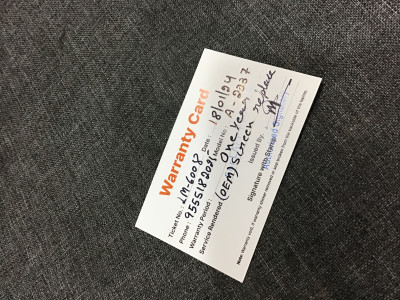 Warranty Card
Ticket No.: LM-6008 Date: 18/01/24
Phone: 9555182085 Model No.: A-2337
Warranty Period: One year
Service Rendered (OEM) Screen replace
Issued By:
Signature with Stamp